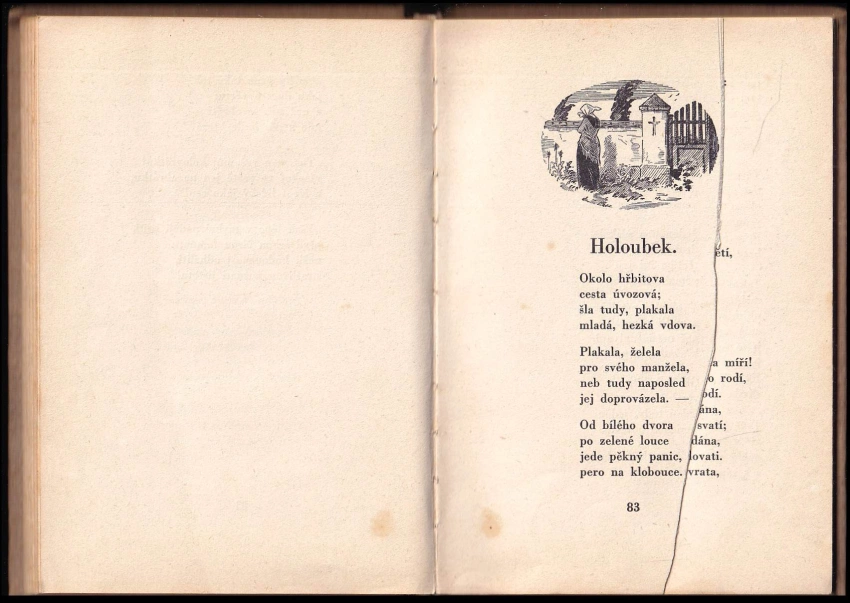 Holoubek.
Okolo hřbitova
cesta úvozová;
šla tudy, plakala
mladá, hezká vdova.
Plakala, želela
pro svého manžela,
neb tudy naposled
jej doprovázela. —
Od bílého dvora
po zelené louce
jede pěkný panic,
pero na klobouce.
83
ětí,
a míří!
o rodí,
odí.
ána,
svatí;
dána,
lovati.
vrata,